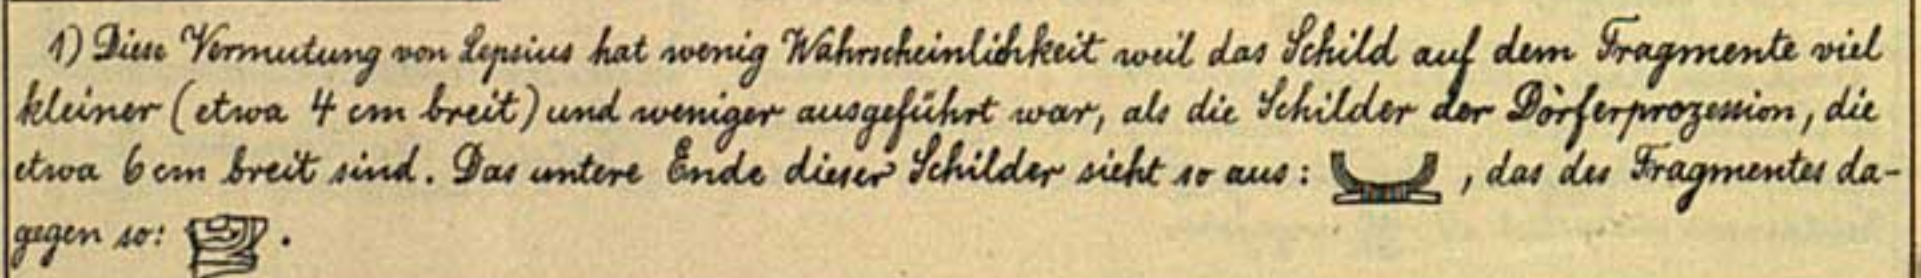 1) Diese Vermutung von Lepsius hat wenig Wahrscheinlichkeit weil das Schild auf dem Fragmente viel
kleiner (etwa 4 cm breit) und weniger ausgeführt war, als die Schilder der Dörferprozession, die
etwa 6 cm breit sind. Das untere Ende dieser Schilder sieht so aus: , das des Fragmentes da-
gegen so: .